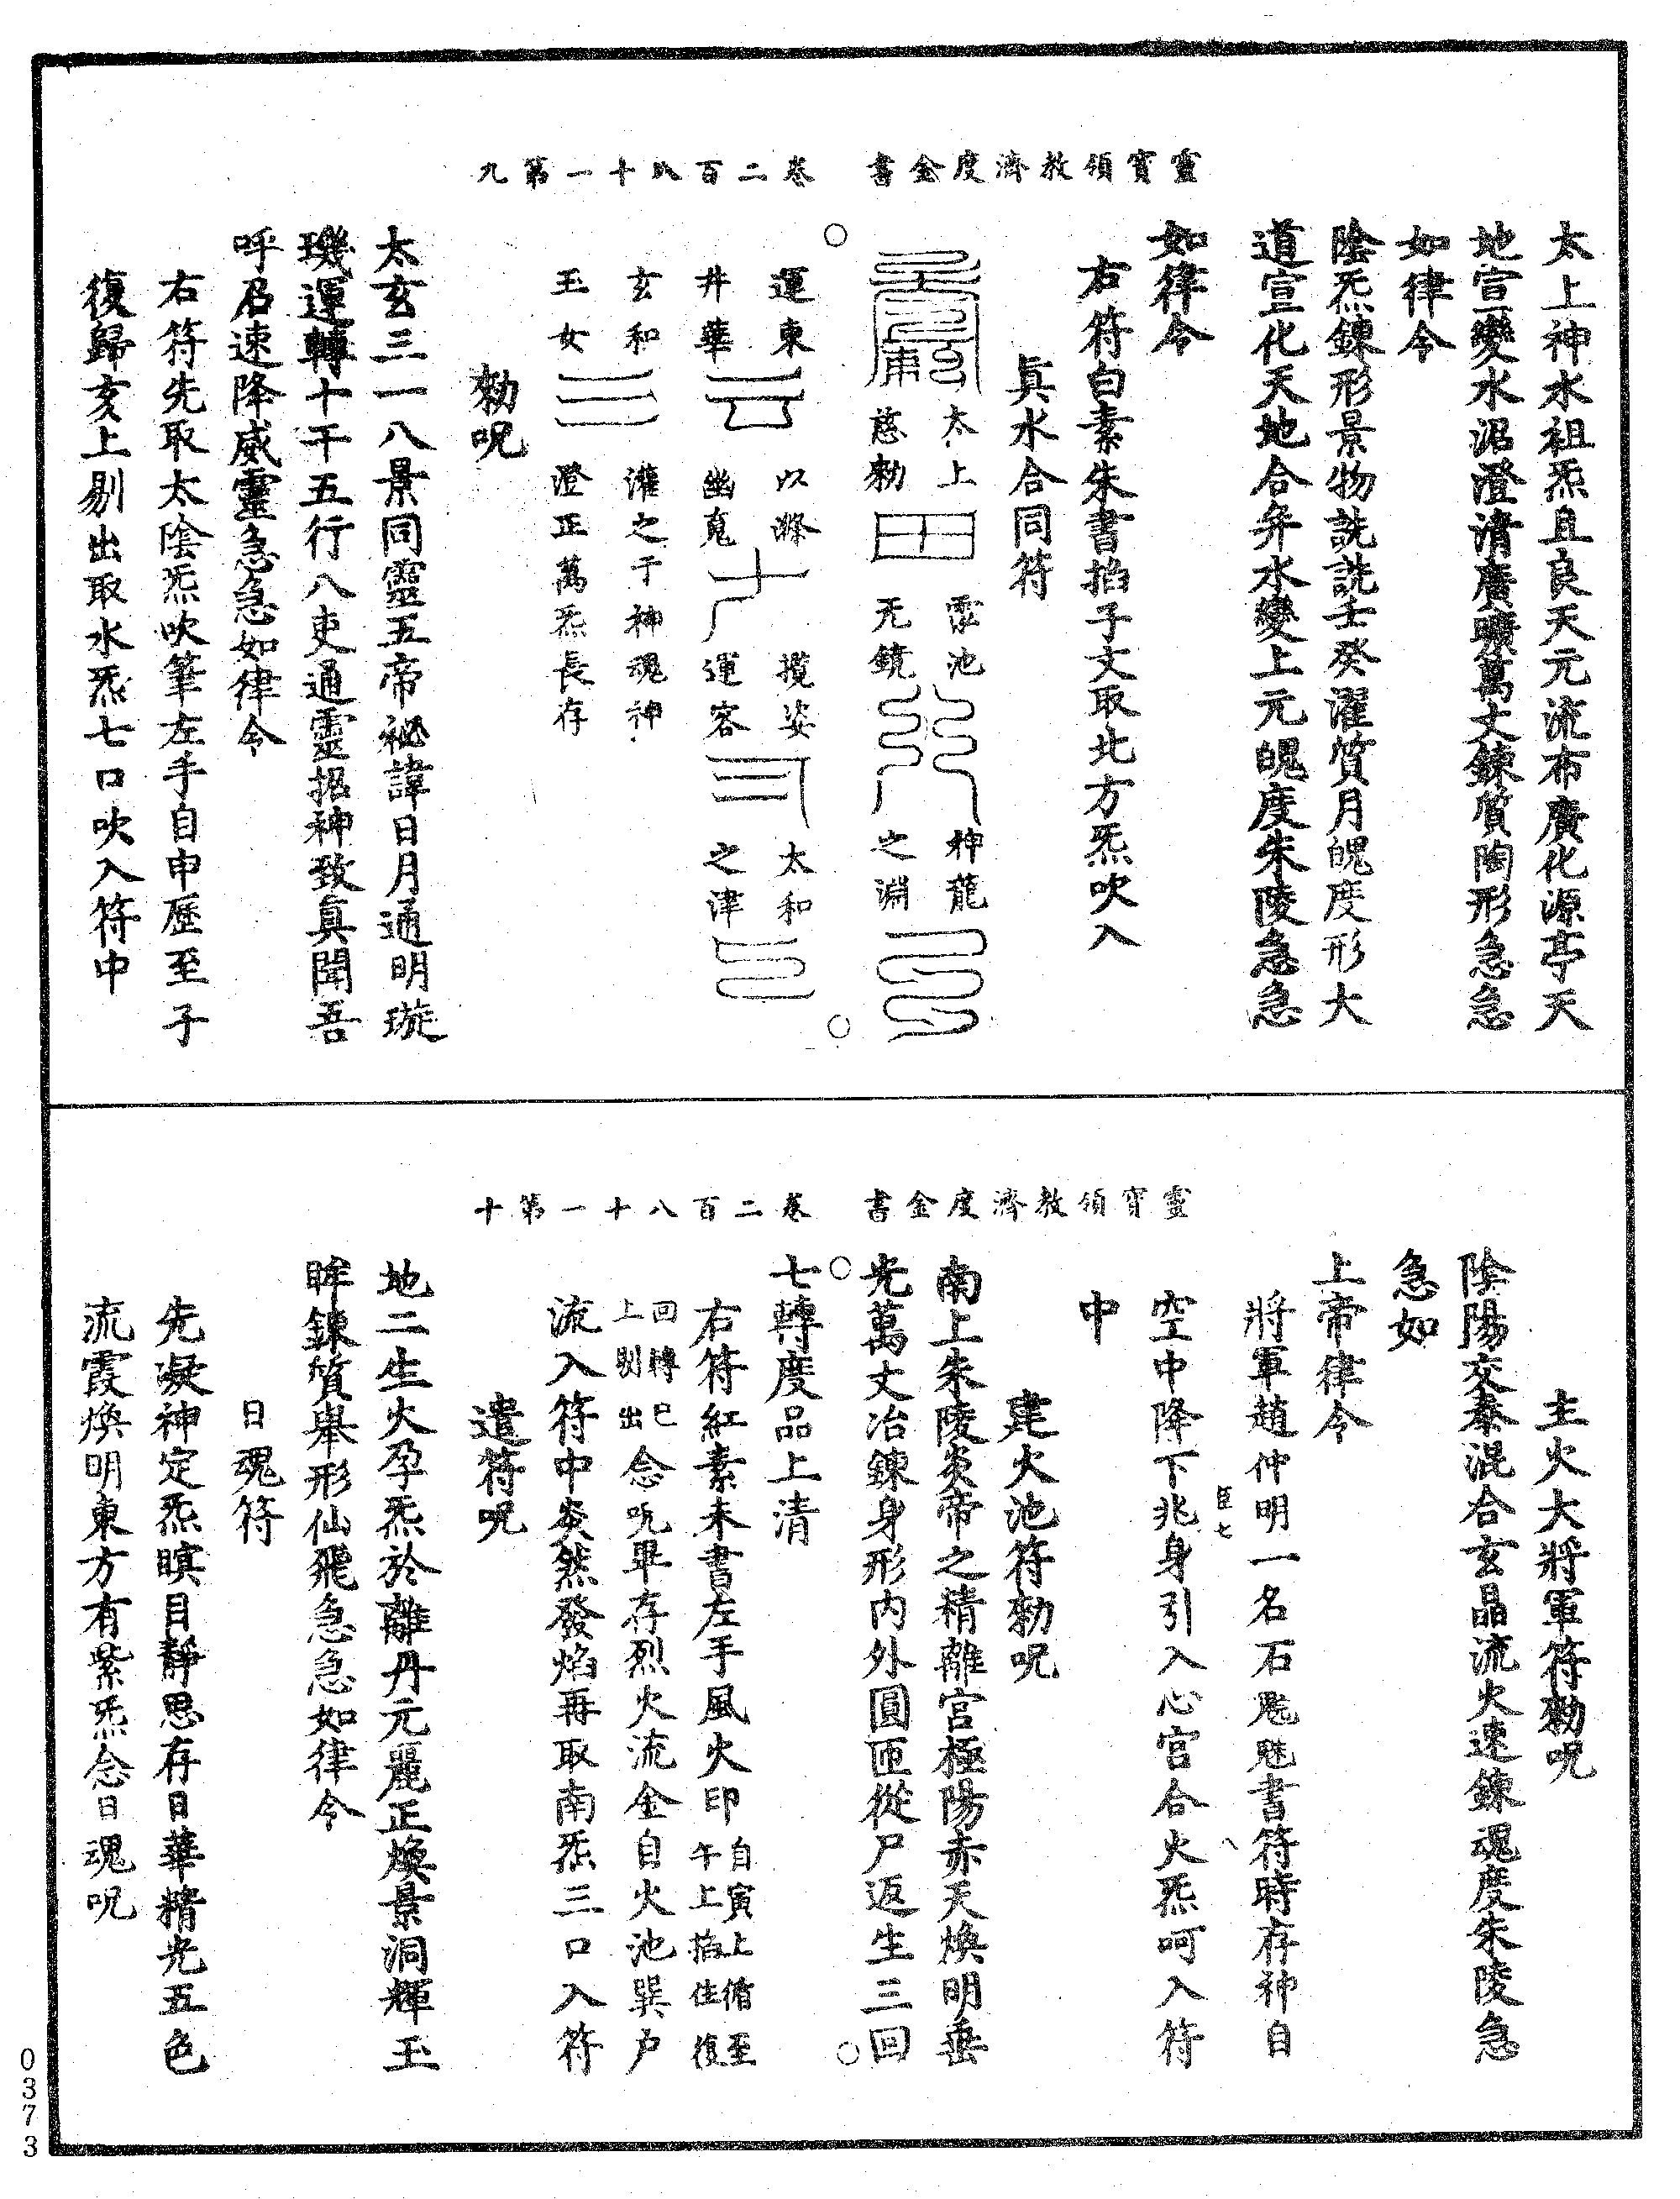 靈寶領教濟度金書　卷二百八十一第九
太上神水祖炁且良天元流布廣化源亭天
地宣變水沼澄清廣曠萬丈鍊質陶形急急
如律令
陰炁鍊形景物詵詵壬癸濯質月魄度形大
道宣化天地合弁水變上元魄度朱陵急急
如律令
右符白素朱書掐子文取北方炁吹入
真水合同符
太上 雷池 神龍
慈勑 无鏡 之淵
運東 以滌 攬姿 太和
井華 幽䰟 運容 之津
玄和 灌之于神魂神
玉女 澄正萬炁長存
勑呪
太玄三一八景同靈五帝祕諱日月通明璇
璣運轉十干五行八吏通靈招神致真聞吾
呼召速降威靈急急如律令
右符先取太陰炁吹筆左手自申歷至子
復歸亥上剔出取水炁七口吹入符中
靈寶領教濟度金書　卷二百八十一第十
主火大將軍符勑呪
陰陽交泰混合玄晶流火速鍊魂度朱陵急
急如
上帝律令
將軍趙仲明一名石䰢魅書符時存神自
空中降下兆身引入心宮合火炁呵入符
中
臣七
建火池符勑呪
南上朱陵炎帝之精離宮極陽赤天煥明垂
光萬丈冶鍊身形內外圓匝從尸返生三回
七轉度品上清
右符紅素未書左手風火印自寅上循至
午上掐住復
回轉巳
上剔出念呪畢存烈火流金自火池巽户
流入符中炎然發焰再取南炁三口入符
遣符呪
地二生火孕炁於離丹元麗正煥景洞輝玉
眸鍊質舉形仙飛急急如律令
日魂符
先凝神定炁瞑目靜思存日華精光五色
流霞煥明東方有紫炁念日魂呪
0373